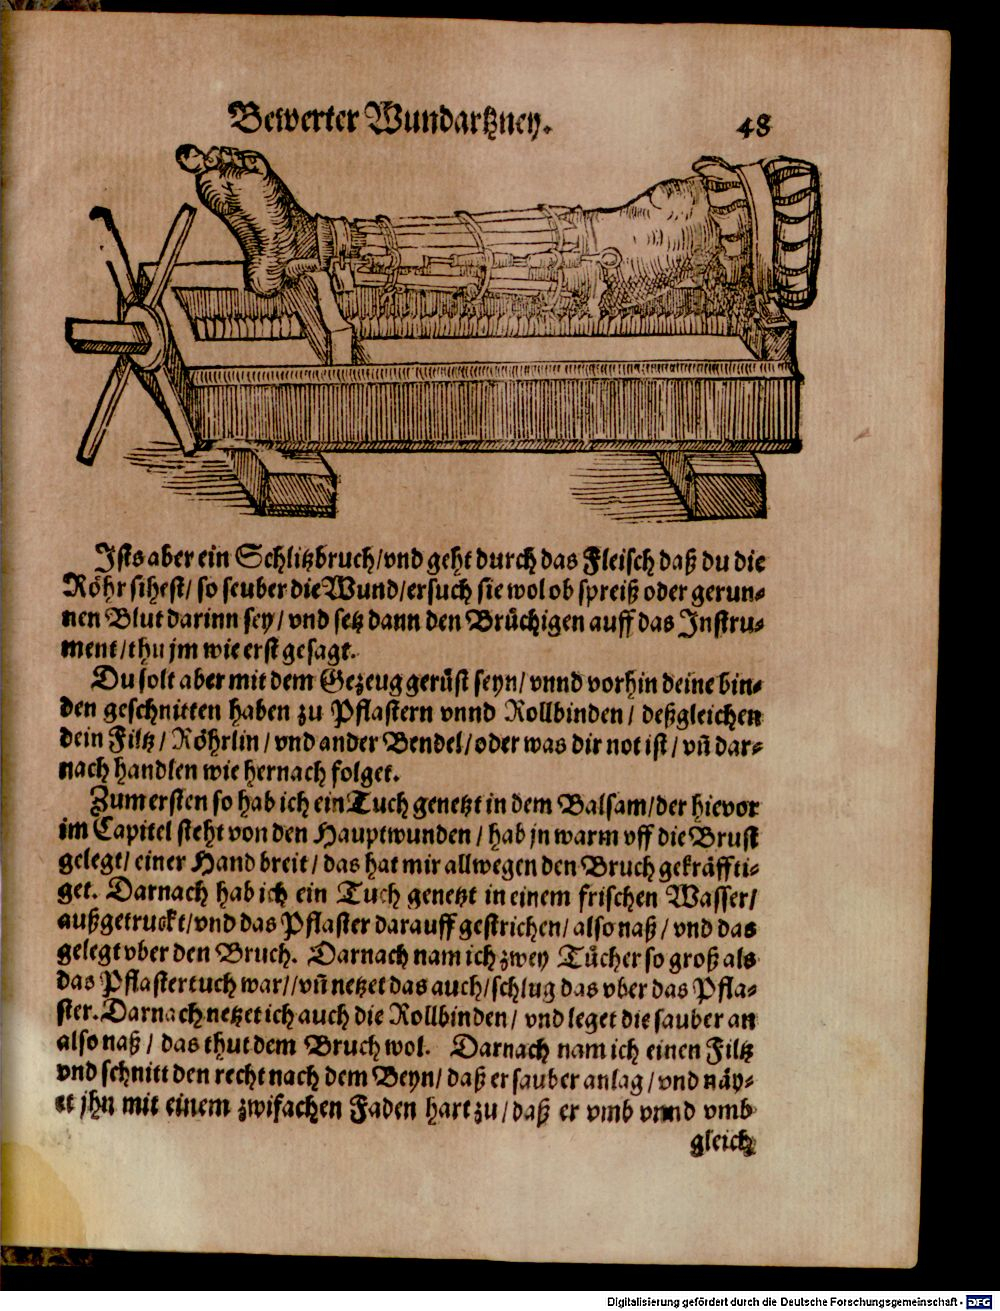 Bewerter Wundartzney.
48
Ists aber ein Schlitzbruch/vnd geht durch das Fleisch daß du die
Röhr sihest/ so seuber die Wund/ersuch sie wol ob spreiß oder gerun-
nen Blut darinn sey/ vnd setz dann den Brüchigen auff das Instru-
ment/thu jm wie erst gesagt.
Du solt aber mit dem Gezeug gerüst seyn/ vnnd vorhin deine bin-
den geschnitten haben zu Pflastern vnnd Rollbinden/ deßgleichen
dein Filtz/ Röhrlin/ vnd ander Bendel/oder was dir not ist/ vñ dar-
nach handlen wie hernach folget.
Zum ersten so hab ich ein Tuch genetzt in dem Balsam/der hievor
im Capitel steht von den Hauptwunden/ hab jn warm vff die Brust
gelegt/ einer Hand breit/ das hat mir allwegen den Bruch gekräffti-
get. Darnach hab ich ein Tuch genetzt in einem frischen Wasser/
außgetruckt/vnd das Pflaster darauff gestrichen/ also naß/ vnd das
gelegt vber den Bruch. Darnach nam ich zwey Tücher so groß als
das Pflastertuch war//vñ netzet das auch/schlug das vber das Pfla-
ster. Darnach netzet ich auch die Rollbinden/ vnd leget die sauber an
also naß/ das thut dem Bruch wol. Darnach nam ich einen Filtz
vnd schnitt den recht nach dem Beyn/ daß er sauber anlag/ vnd näy-
et jhn mit einem zwifachen Faden hart zu/ daß er vmb vnnd vmb
gleich
Digitalisierung gefördert durch die Deutsche Forschungsgemeinschaft - DFG